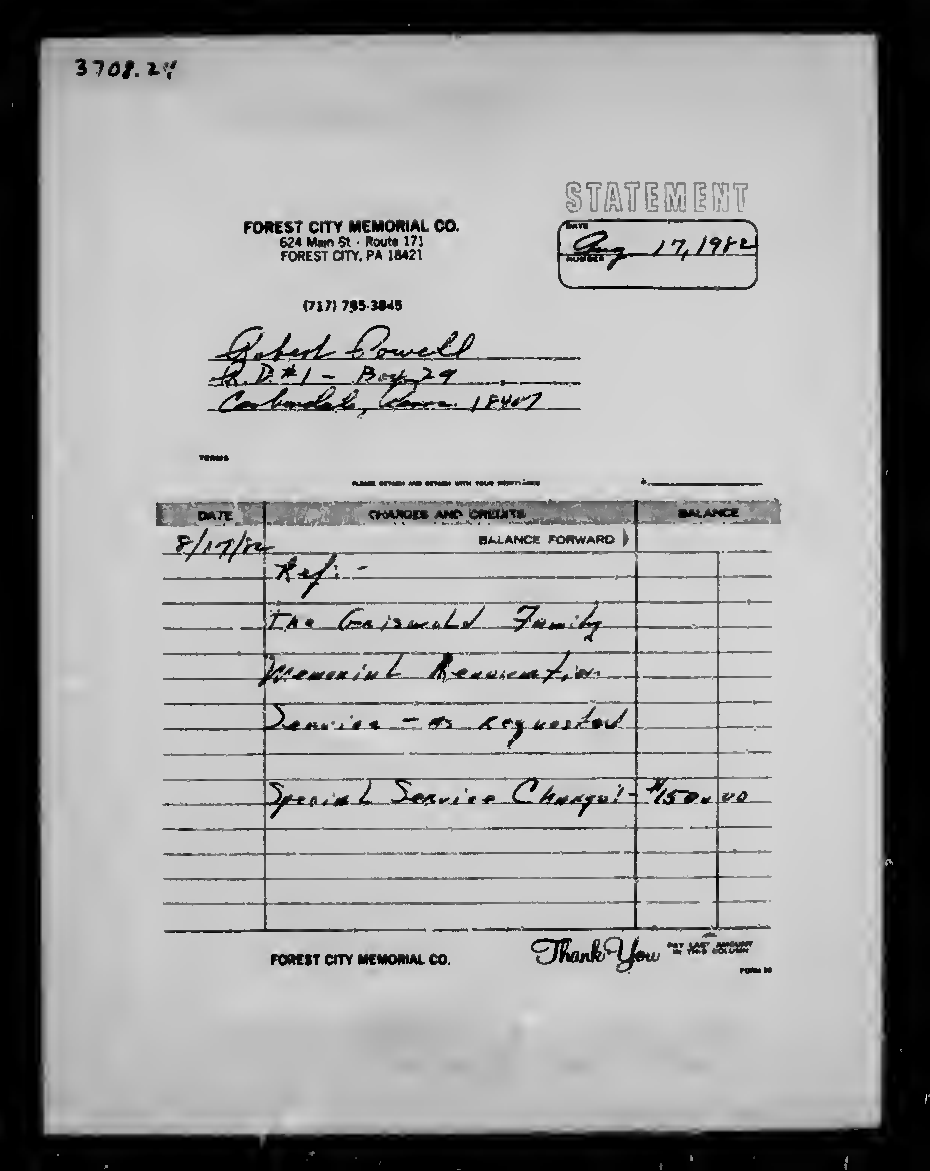 3708.24
STATEMENT
FOREST CITY MEMORIAL CO.
624 Main St · Route 171
FOREST CITY, PA 18421
DATE
Aug 17, 1982
NUMBER
(717) 785-3845
Robert Powell
R.D.#1 - Box 29
Carbondale, Penna. 18407
TERMS
PLEASE DETACH AND RETURN WITH YOUR REMITTANCE
$
DATE CHARGES AND CREDITS BALANCE
8/17/82 BALANCE FORWARD
Ref: -
The Griswold Family
Memorial Renovation
Service - as requested
Special Service Charge! - $150.00
FOREST CITY MEMORIAL CO.
Thank You
PAY LAST AMOUNT
IN THIS COLUMN
FORM